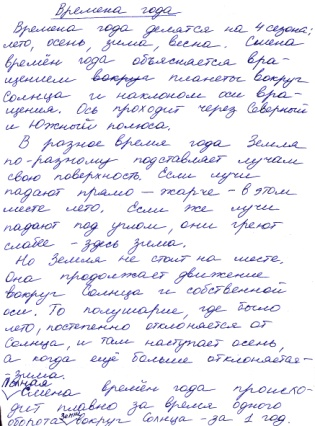 Времена года
Времена года делятся на 4 сезона:
лето, осень, зима, весна. Смена
времён года объясняется вра-
щением вокруг планеты вокруг
Солнца и наклоном оси вра-
щения. Ось проходит через Северный
и Южный полюса.
В разное время года Земля
по-разному подставляет лучам
свою поверхность. Если лучи
падают прямо – жарче – в этом
месте лето. Если же лучи
падают под углом, они греют
слабее – здесь зима.
Но Земля не стоит на месте.
Она продолжает движение
вокруг Солнца и собственной
оси. То полушарие, где было
лето, постепенно отклоняется от
Солнца, и там наступает осень,
а когда ещё больше отклоняется –
– зима.
Полная
Смена времён года происхо-
дит плавно за время одного
оборота Земли вокруг Солнца – за 1 год.